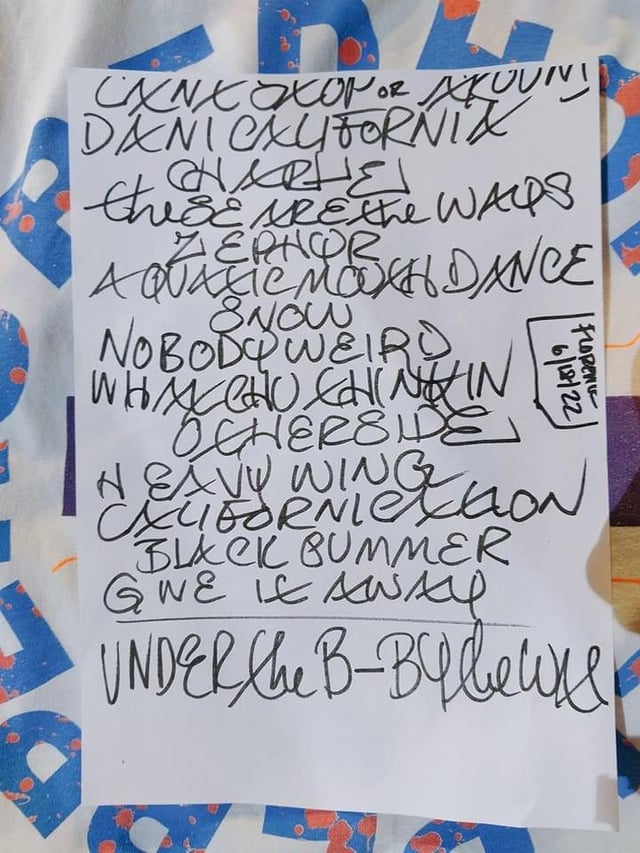 CANT STOP OR AROUND
DANI CALIFORNIA
CHARLIE
these ARE the WAYS
ZEPHYR
AQUATIC MOUTH DANCE
SNOW
NOBODY WEIRD
WHATCHU THINKIN
OTHERSIDE
HEAVY WING
CALIFORNICATION
BLACK SUMMER
GIVE IT AWAY
UNDER the B-BY the WAY
FLORENCE
6/18/22